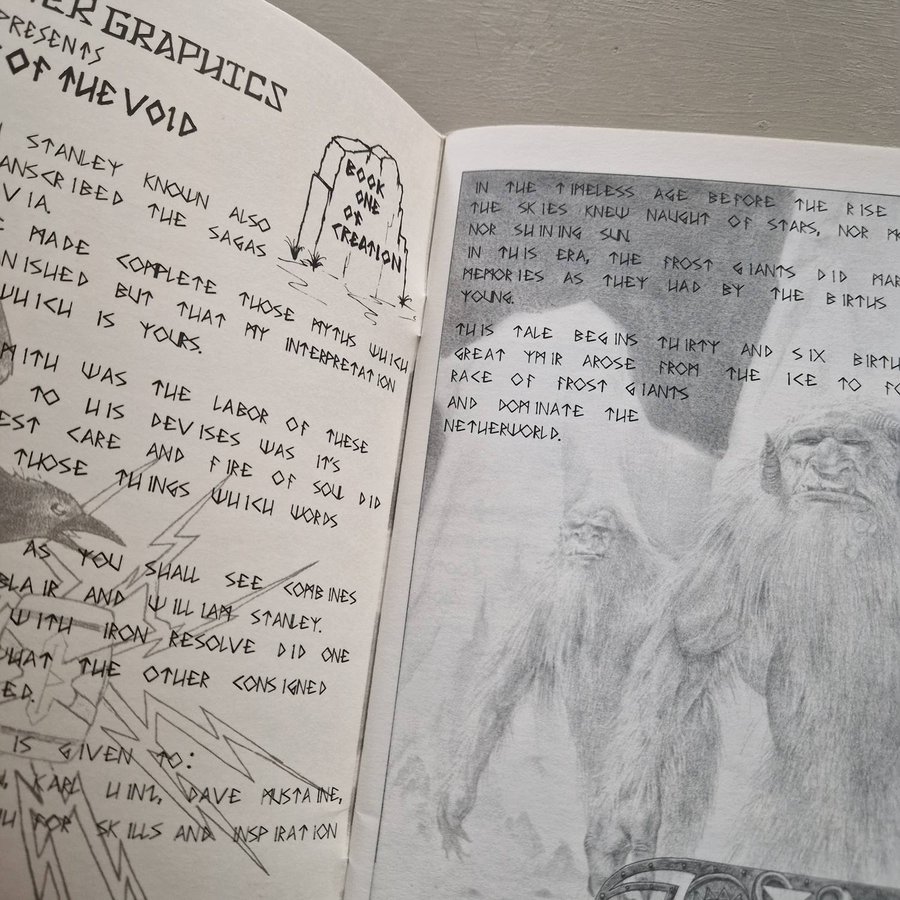 GRAPHICS
PRESENTS
OF THE VOID
STANLEY KNOWN ALSO
THE SAGAS
MADE COMPLETE THOSE MYTHS WHICH
BUT THAT MY INTERPRETATION
WHICH IS YOURS.
WAS THE LABOR OF THESE
TO HIS DEVISES WAS IT'S
CARE AND FIRE OF SOUL DID
THOSE THINGS WHICH WORDS
AS YOU SHALL SEE COMBINES
BLAIR AND WILLIAM STANLEY.
WITH IRON RESOLVE DID ONE
WHAT THE OTHER CONSIGNED
IS GIVEN TO:
KARL HINZ, DAVE MUSTAINE,
FOR SKILLS AND INSPIRATION
BOOK
ONE
OF
CREATION
IN THE TIMELESS AGE BEFORE THE RISE
THE SKIES KNEW NAUGHT OF STARS, NOR
NOR SHINING SUN.
IN THIS ERA, THE FROST GIANTS DID
MEMORIES AS THEY HAD BY THE BIRTHS
YOUNG.
THIS TALE BEGINS THIRTY AND SIX
GREAT YMIR AROSE FROM THE ICE TO
RACE OF FROST GIANTS
AND DOMINATE THE
NETHERWORLD.